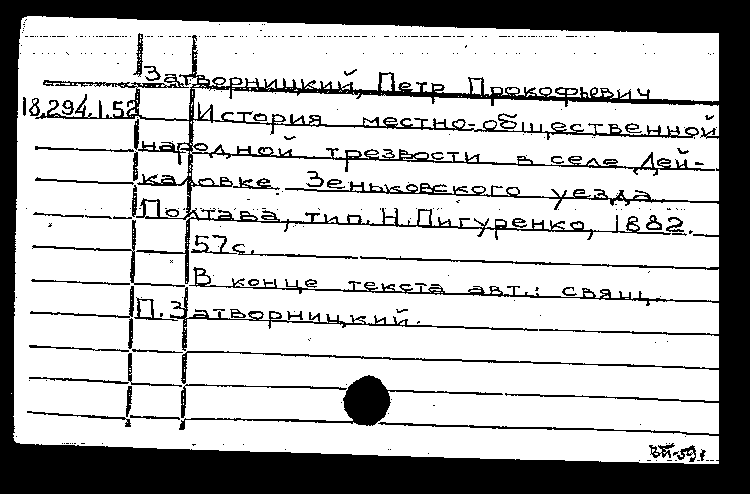 Затворницкий, Петр Прокофьевич
18.294.1.52 История местно-общественной
народной трезвости в селе Дей-
каловке Зеньковского уезда.
Полтава, тип. Н.Пигуренко, 1882.
57с.
В конце текста авт.: свящ.
П.Затворницкий.